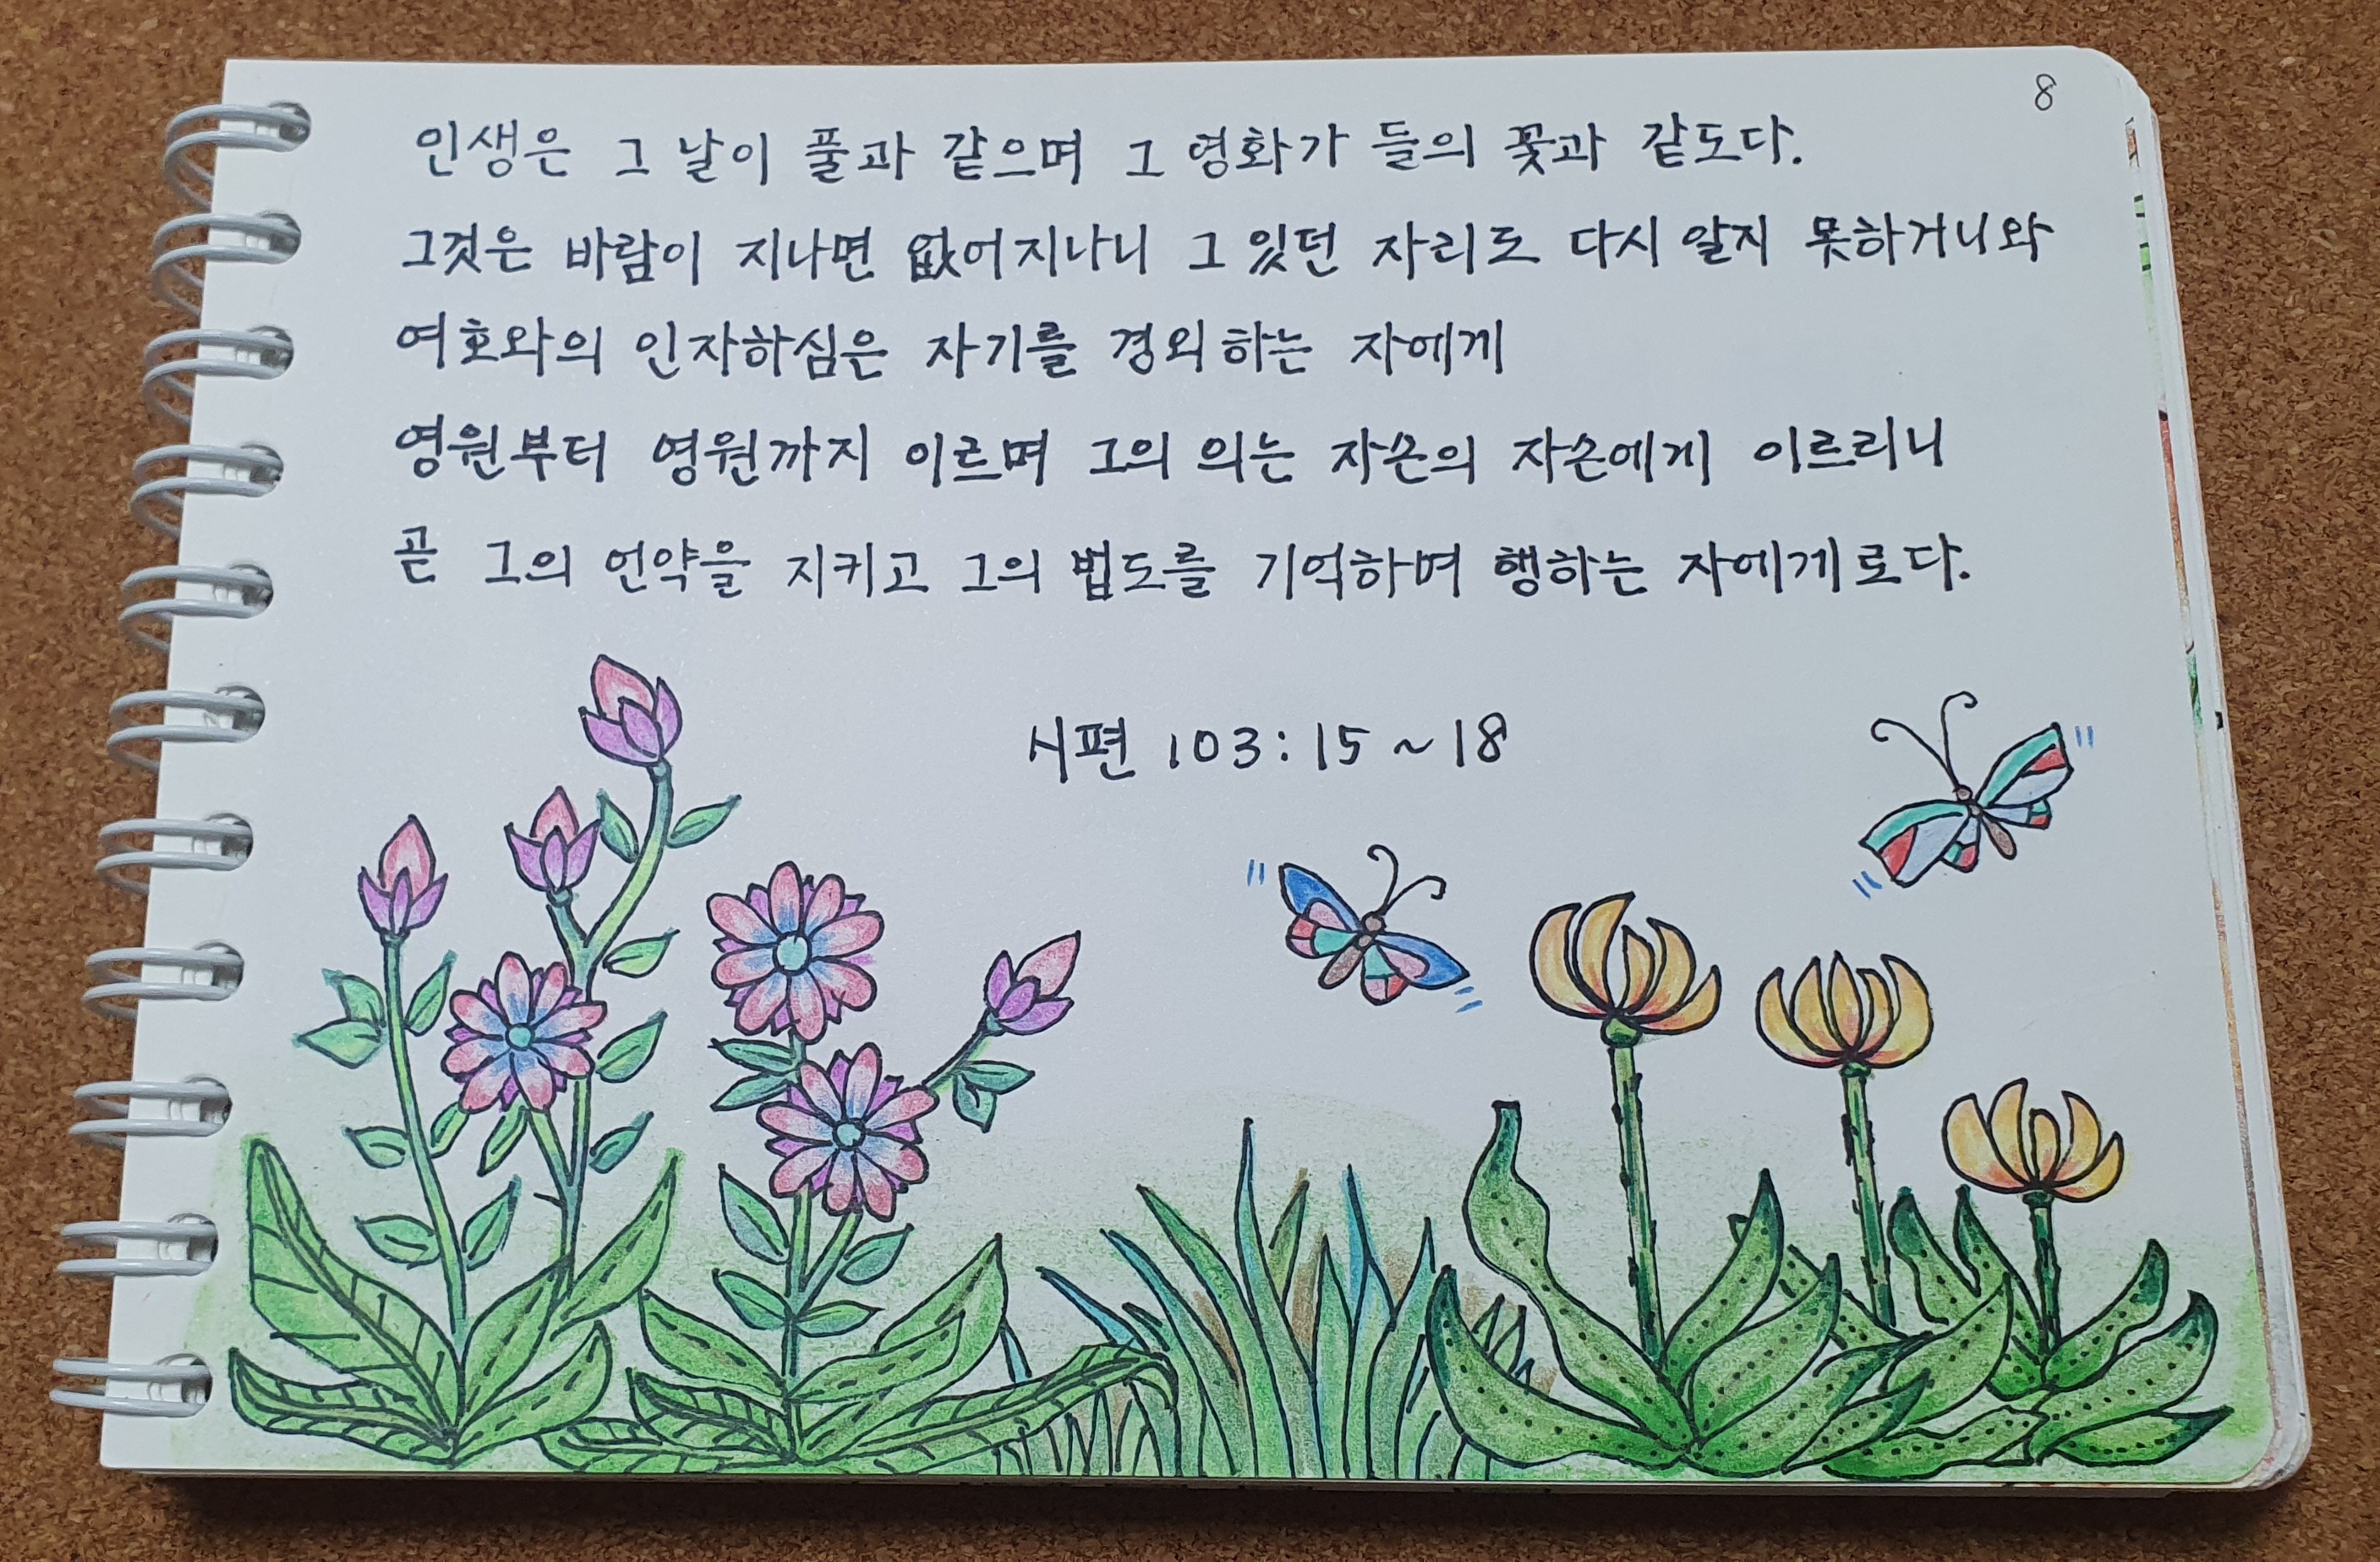 8
인생은 그 날이 풀과 같으며 그 영화가 들의 꽃과 같도다.
그것은 바람이 지나면 없어지나니 그 있던 자리도 다시 알지 못하거니와
여호와의 인자하심은 자기를 경외하는 자에게
영원부터 영원까지 이르며 그의 의는 자손의 자손에게 이르리니
곧 그의 언약을 지키고 그의 법도를 기억하며 행하는 자에게로다.
시편 103:15~18